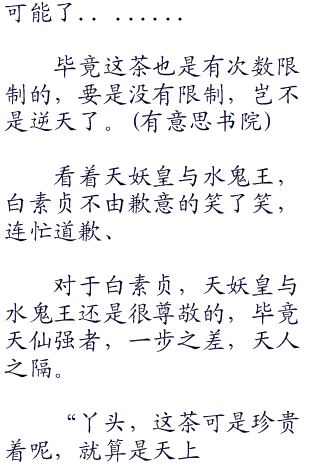 可能了．．．．．．．．
毕竟这茶也是有次数限
制的，要是没有限制，岂不
是逆天了。(有意思书院)
看着天妖皇与水鬼王，
白素贞不由歉意的笑了笑，
连忙道歉、
对于白素贞，天妖皇与
水鬼王还是很尊敬的，毕竟
天仙强者，一步之差，天人
之隔。
“丫头，这茶可是珍贵
着呢，就算是天上